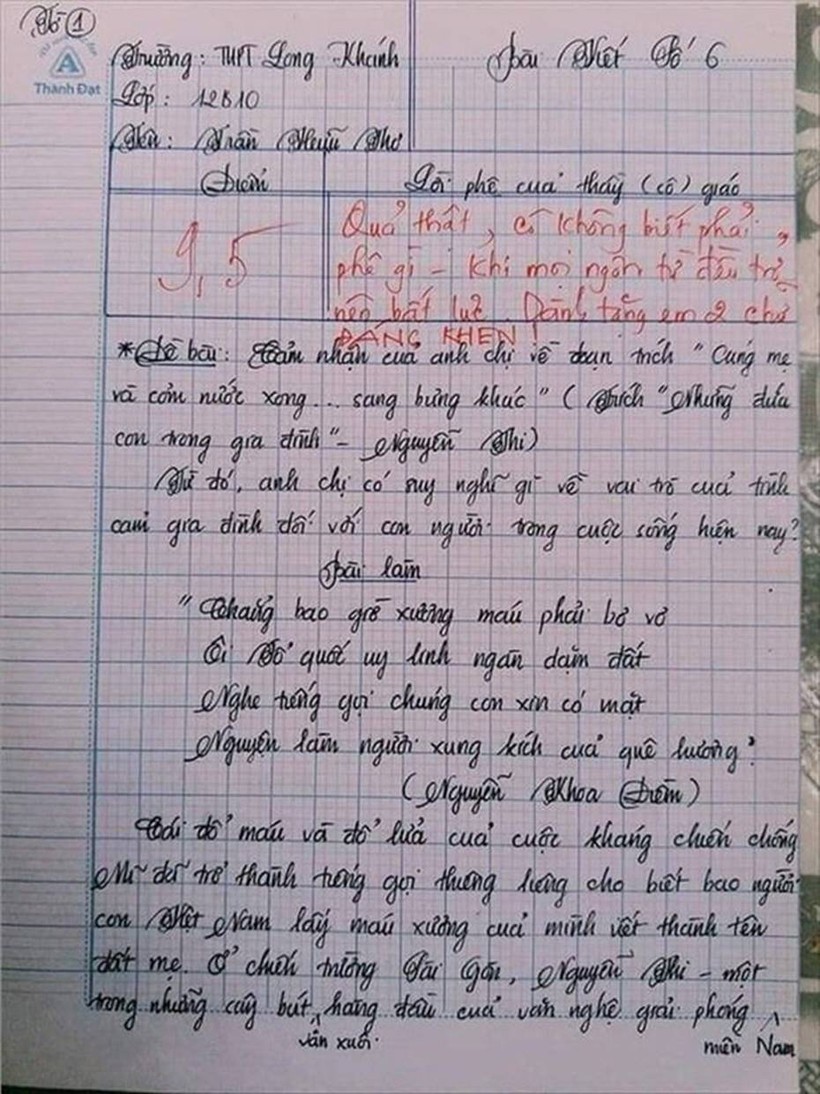 Tờ ①
A
Thành Đạt
Trường: THPT Long Khánh
Bài Viết Số 6
Lớp: 12B10
Tên: Trần Hữu Thơ
Điểm
Lời phê của thầy (cô) giáo
9,5
Quả thật, cô không biết phải
phê gì - khi mọi ngôn từ đều trở
nên bất lực. Dành tặng em 2 chữ
ĐÁNG KHEN!
*Đề bài: Cảm nhận của anh chị về đoạn trích "Cúng mẹ
và cơm nước xong... sang bưng khác" (Trích "Những đứa
con trong gia đình" - Nguyễn Thi)
Từ đó, anh chị có suy nghĩ gì về vai trò của tình
cảm gia đình đối với con người trong cuộc sống hiện nay?
Bài làm
"Chẳng bao giờ xương máu phải bơ vơ
Ôi Tổ quốc uy linh ngàn dặm đất
Nghe tiếng gọi chúng con xin có mặt
Nguyện làm người xung kích của quê hương"
(Nguyễn Khoa Điềm)
Cái đổ máu và đổ lửa của cuộc kháng chiến chống
Mĩ đã trở thành tiếng gọi thiêng liêng cho biết bao người
con Việt Nam lấy máu xương của mình viết thành tên
đất mẹ. Ở chiến trường Sài Gòn, Nguyễn Thi - một
trong những cây bút văn xuôi hàng đầu của văn nghệ giải phóng miền Nam